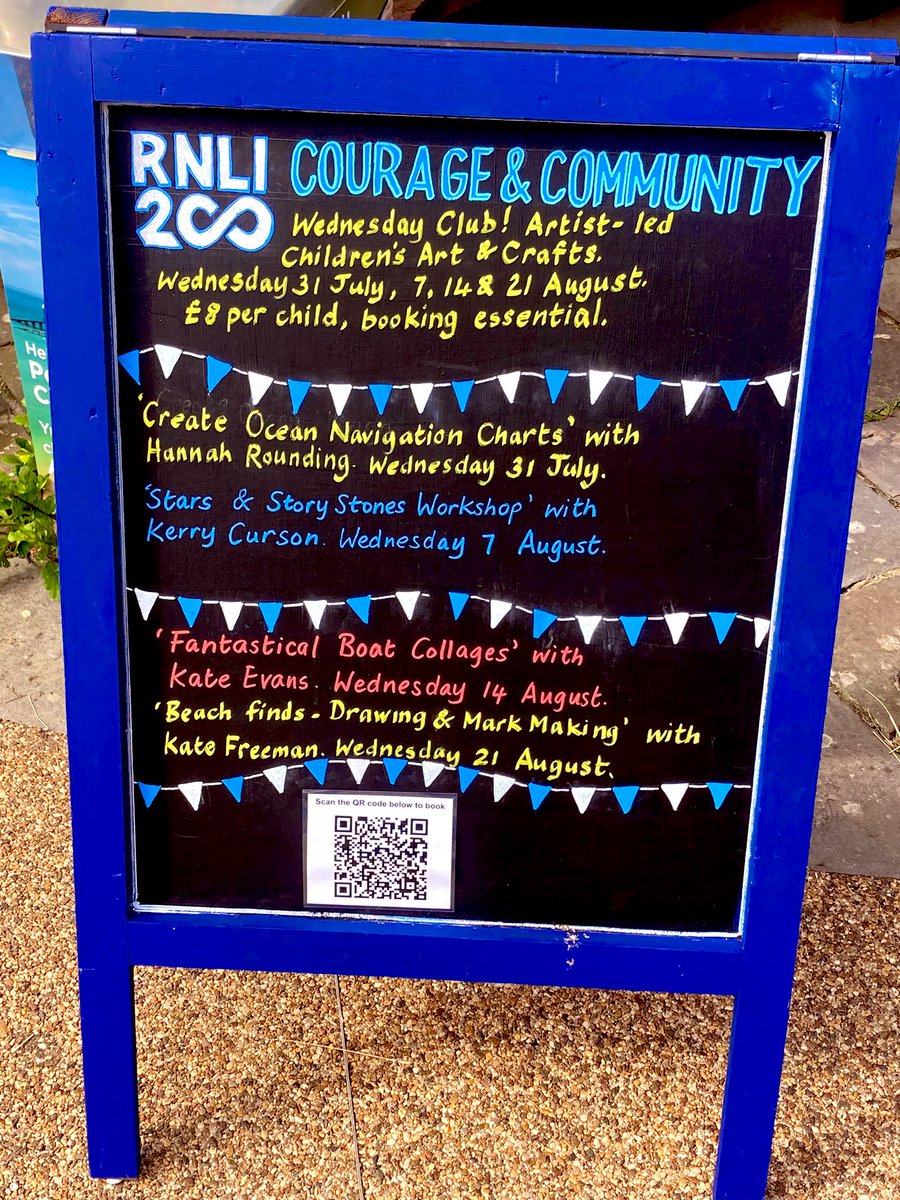 RNLI COURAGE & COMMUNITY
200
Wednesday Club! Artist-led
Children's Art & Crafts.
Wednesday 31 July, 7, 14 & 21 August.
£8 per child, booking essential.
'Create Ocean Navigation Charts' with
Hannah Rounding. Wednesday 31 July.
'Stars & Story Stones Workshop' with
Kerry Curson. Wednesday 7 August.
'Fantastical Boat Collages' with
Kate Evans. Wednesday 14 August.
'Beach finds - Drawing & Mark Making' with
Kate Freeman. Wednesday 21 August.
Scan the QR code below to book